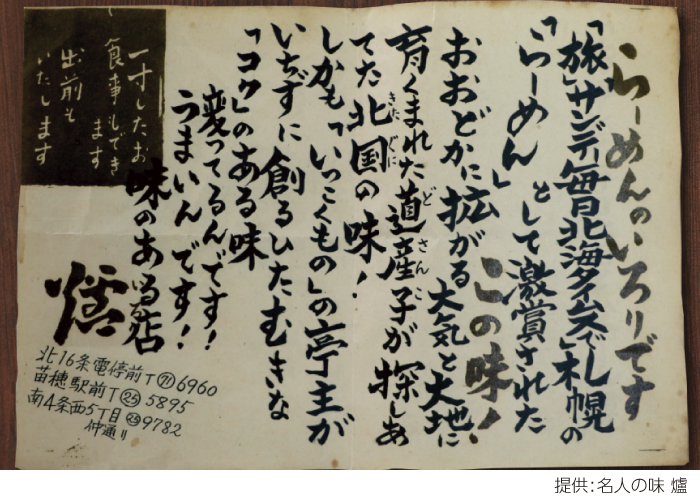 らーめんのいろりです
「旅」サンデー毎日北海タイムスで「札幌の
「らーめん」として激賞された
この味!
おおどかに拡がる大気と大地に
育くまれた道産子が探しあ
どさんこ
てた北国の味!
きたぐに
しかも「いっこくもの」の亭主が
いちずに創るひたむきな
「コク」のある味
変ってるんです!
うまいんです!
味のある店
爐
一寸したお
食事もできます
出前も
いたします
北16条電停前T(71)6960
苗穂駅前T(25)5895
南4条西5丁目(23)9782
仲通り
提供:名人の味 爐